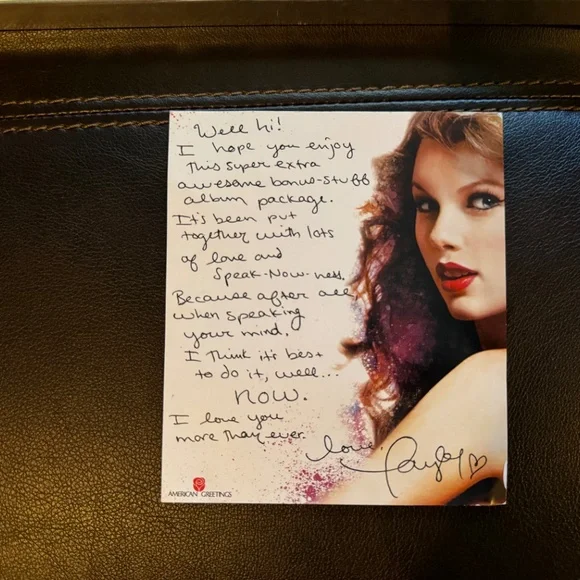 Well hi!
I hope you enjoy
this super extra
awesome bonus-stuff
album package.
It's been put
together with lots
of love and
Speak-Now-ness.
Because after all,
when speaking
your mind,
I think it's best
to do it, well...
NOW.
I love you
more than ever.
love,
Taylor
AMERICAN GREETINGS